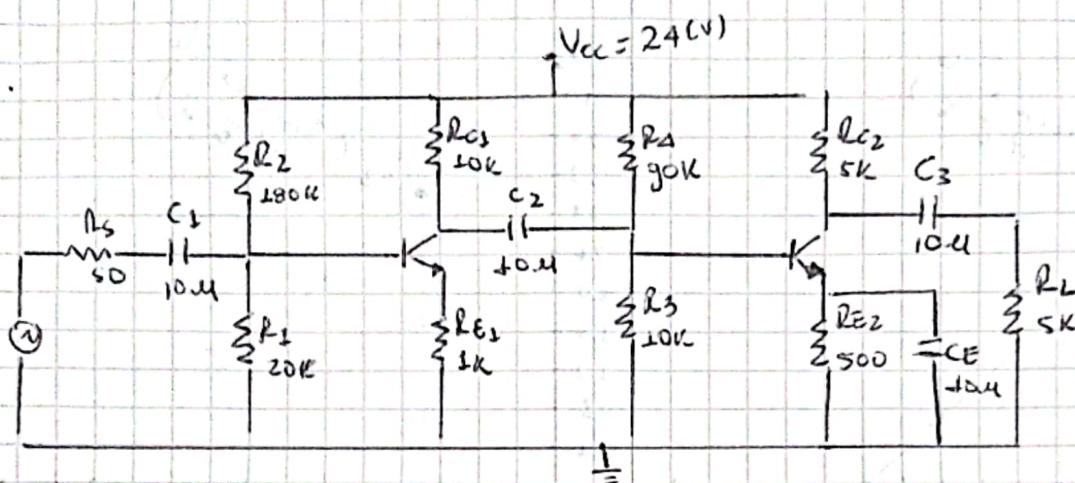 Vcc = 24(V)
R2
180K
RC1
10K
R4
90K
RC2
5K
C3
10 µ
RS
50
C1
10 µ
C2
10 µ
R1
20K
RE1
1K
R3
10K
RE2
500
CE
10µ
RL
5K